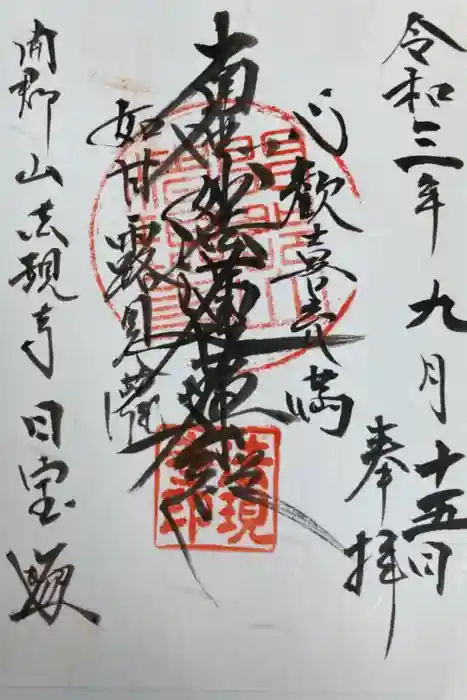 令和三年九月十五日
奉拝
心歓喜充満
南無妙法蓮華経
如甘露見灌
郷山法現寺日宝